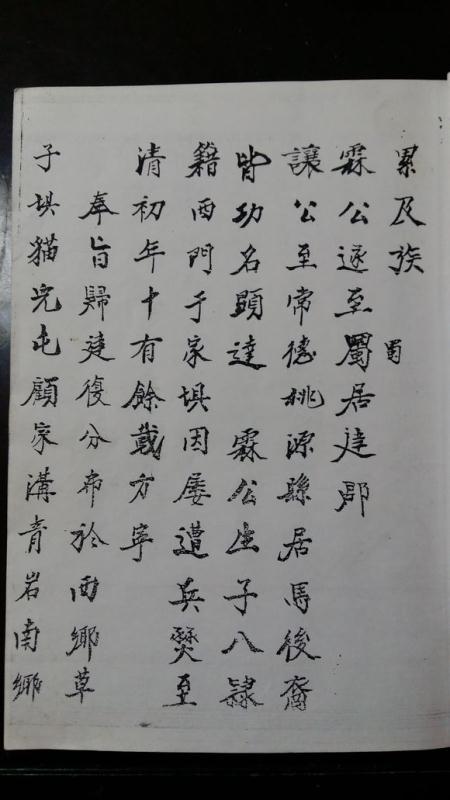 累及族
蜀
霖公遂至蜀居建郡
讓公至常德桃源縣居馬後裔
皆功名顯達　霖公生子八隸
籍西門于家垻因屡遭兵燹至
清初年十有餘載方寧
奉旨歸建復分布於西鄉草
子垻貓兒屯顧家溝青岩南鄉